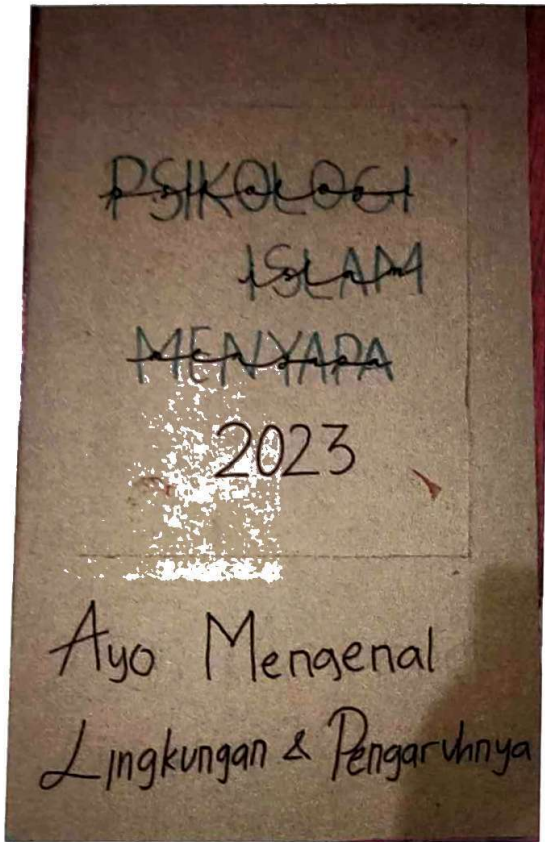 PSIKOLOGI
ISLAM
MENYAPA
2023
Ayo Mengenal
Lingkungan & Pengaruhnya